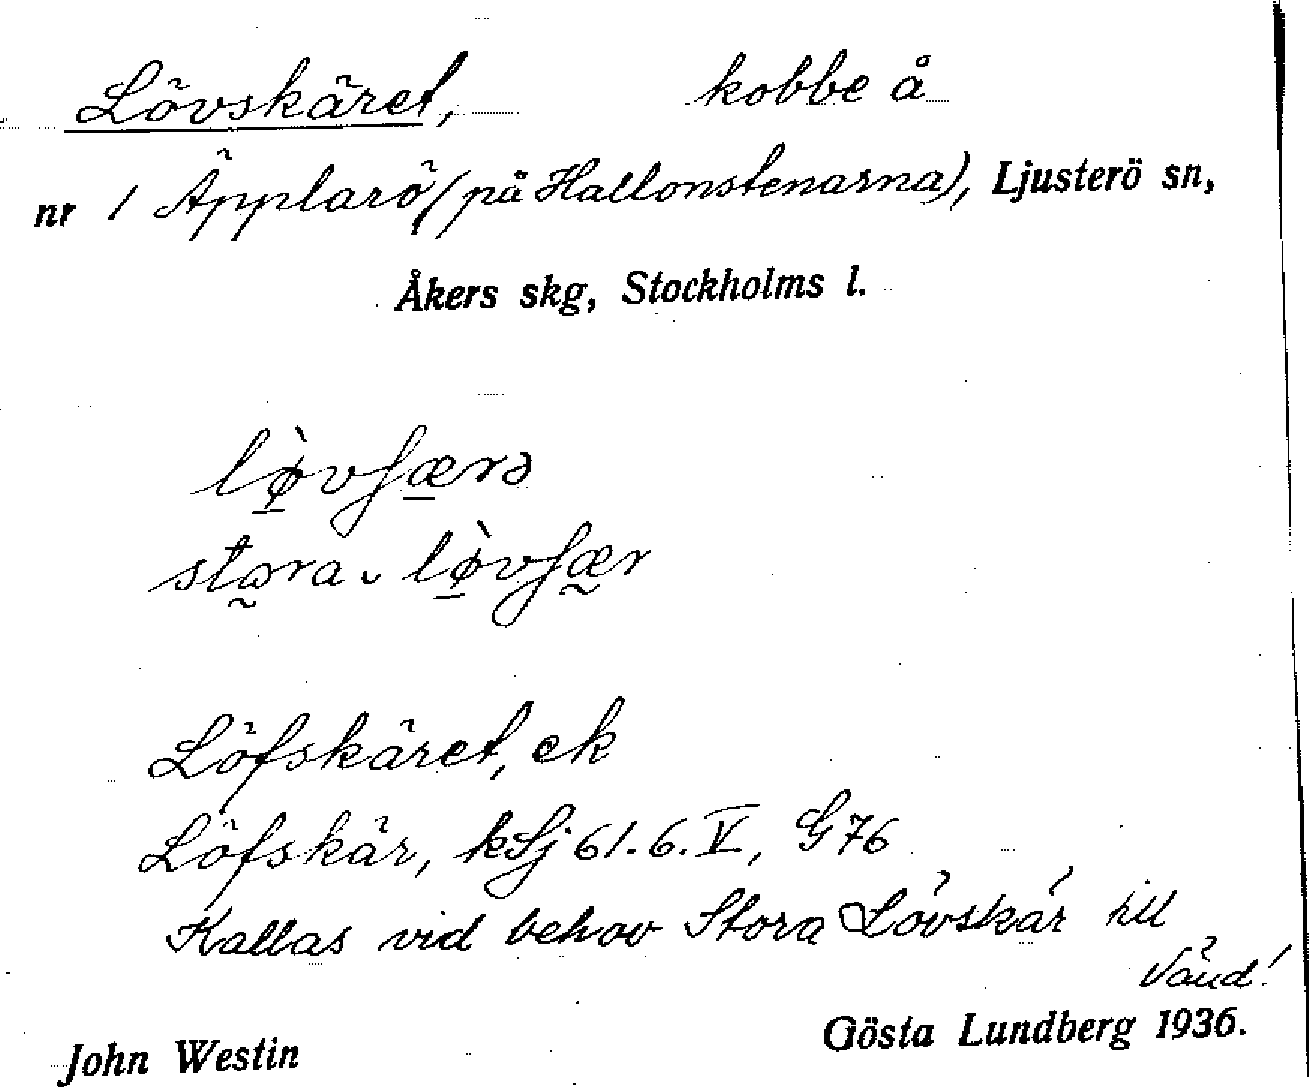 Lövskäret, kobbe å
nr 1 Äpplarö (på Hallonstenarna), Ljusterö sn,
Åkers skg, Stockholms l.
lø̀vʃærə
stɷra ˬ lø̀vʃær
Löfskäret, ek
Löfskär, kSj 61.6.V, G 76
Kallas vid behov Stora Lövskär till
Vänd!
John Westin Gösta Lundberg 1936.